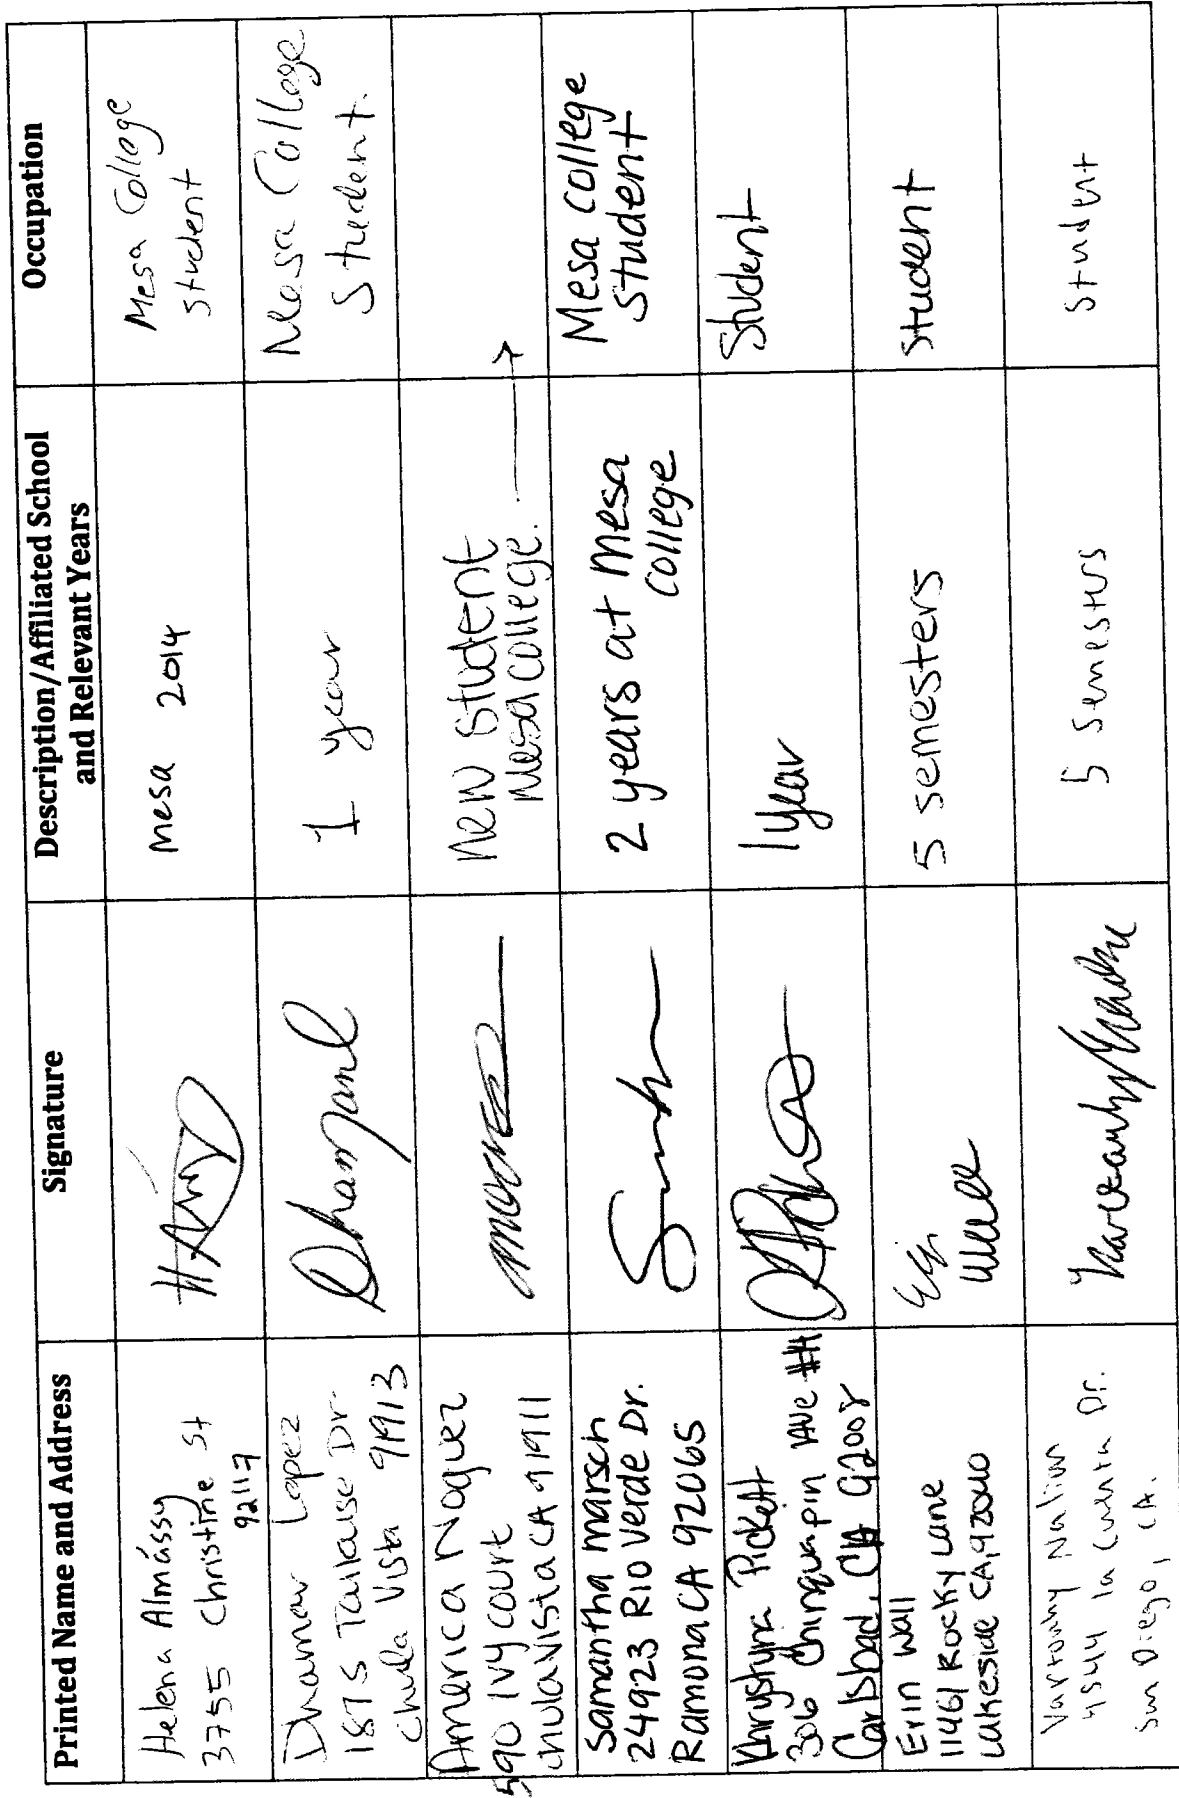 Printed Name and Address
Signature
Description/Affiliated School
and Relevant Years
Occupation
Helena Almássy
3755 Christine St
92117
Mesa 2014
Mesa College
student
Dhamar Lopez
1875 Dr.
Chula Vista 91913
1 year
Mesa College
Student.
America Noguez
590 Ivy court
chula Vista CA 91911
New student
Mesa college.
Samantha marsch
24923 Rio Verde Dr.
Ramona CA 92065
2 years at Mesa
college
Mesa college
student
Khrystyna Pickett
306 Chinquapin Ave
Carlsbad, CA 92008
1 year
Student
Erin Wall
11461 Rocky Lane
Lakeside CA, 92040
5 semesters
student
4544 la Dr.
San Diego, CA.
5 semesters
student